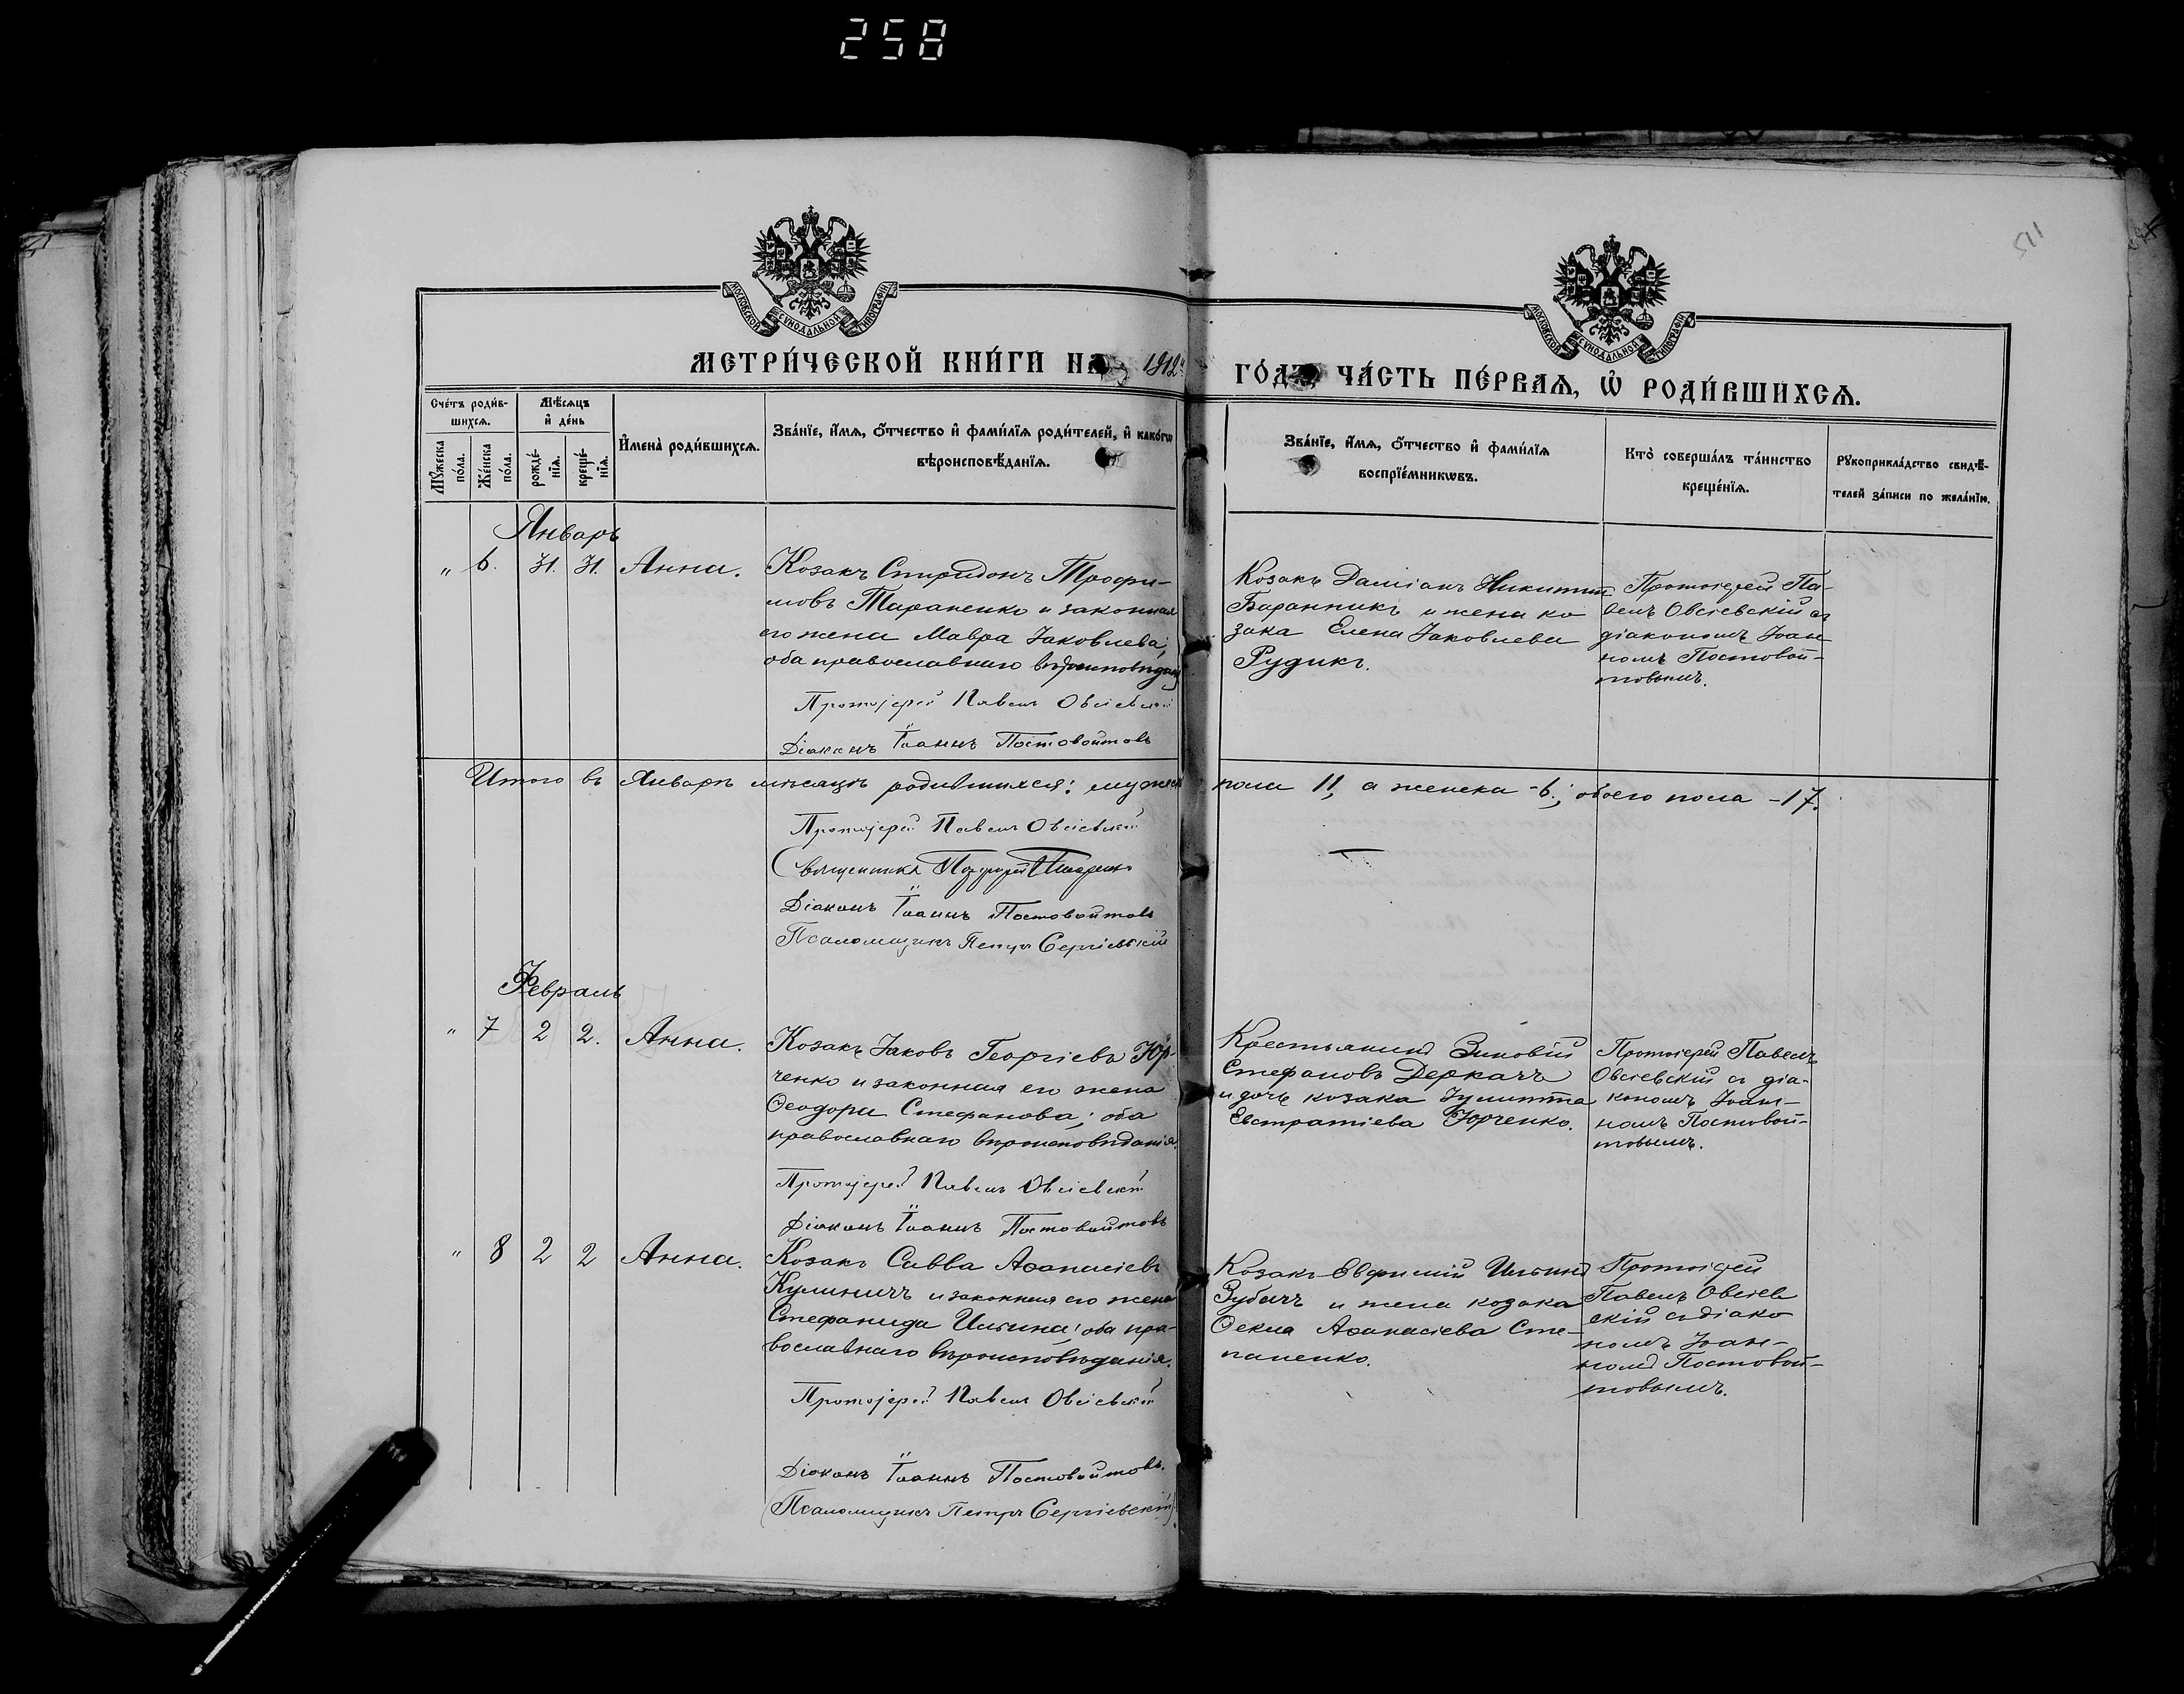 258
511
МОСКОВСКОЙ СѴНОДАЛЬНОЙ ТИПОГРАФІИ
МОСКОВСКОЙ СѴНОДАЛЬНОЙ ТИПОГРАФІИ
МЕТРИ́ЧЕСКОЙ КНИ́ГИ НА 1912 ГО́ДЪ ЧА́СТЬ ПЕ́РВАЯ, Ѡ҆ РОДИ́ВШИХСѦ.
Сче́тъ роди́в-
шихсѧ.
Мꙋ́жеска
по́ла.
Же́нска
по́ла.
Мѣ́сѧцъ
и҆ де́нь
рожде́-
нїѧ.
креще́-
нїѧ.
И҆мена̀ роди́вшихсѧ.
Зва́нїе, и҆́мѧ, ѻ҆́тчество и҆ фами́лїѧ роди́телей, и҆ како́гѡ
вѣроисповѣ́данїѧ.
Зва́нїе, и҆́мѧ, ѻ҆́тчество и҆ фами́лїѧ
воспрїе́мникѡвъ.
Кто̀ соверша́лъ та́инство
креще́нїѧ.
Рꙋкоприкла́дство свидѣ́-
телей за́писи по жела́нїю.
Январь
„ 6. 31. 31. Анна.
Козакъ Спиридонъ Трофи-
мовъ Тараненко и законная
его жена Мавра Іаковлева;
оба православнаго вѣроисповѣдан
Протоіерей Павелъ Овсіевскій
Діаконъ Іоаннъ Постовойтовъ
Козакъ Даміанъ Никитинъ
Баранникъ и жена ко
зака Елена Іаковлева
Рудикъ.
Протоіерей Па-
велъ Овсіевскій съ
діакономъ Іоан-
номъ Постовой-
товымъ.
Итого въ Январѣ мѣсяцѣ родившихся: мужеск пола 11, а женска -6.; обоего пола -17.
Протоіерей Павелъ Овсіевскій
Священникъ
Діаконъ Іоаннъ Постовойтовъ
Псаломщикъ Петръ Сергіевскій
Февраль
„ 7 2 2. Анна.
Козакъ Іаковъ Георгіевъ Юр-
ченко и законная его жена
Ѳеодора Стефанова; оба
православнаго вѣроисповѣданія.
Протоіерей Павелъ Овсіевскій
Діаконъ Іоаннъ Постовойтовъ
Крестьянинъ Зиновій
Стефановъ Деркачъ
и дочь козака Іулитта
Евстратіева Юрченко.
Протоіерей Павелъ
Овсіевскій съ діа-
кономъ Іоан-
номъ Постовой-
товымъ.
„ 8 2 2 Анна.
Козакъ Савва Аѳанасіевъ
Кулиничъ и законная его жена
Стефанида Ильина; оба пра-
вославнаго вѣроисповѣданія.
Протоіерей Павелъ Овсіевскій
Діаконъ Іоаннъ Постовойтовъ.
Псаломщикъ Петръ Сергіевскій
Козакъ Евфимій Ильинъ
Зубачъ и жена козака
Ѳекла Аѳанасіева Сте-
паненко.
Протоіерей
Павелъ Овсіев
скій съ діако
номъ Іоан-
номъ Постовой-
товымъ.